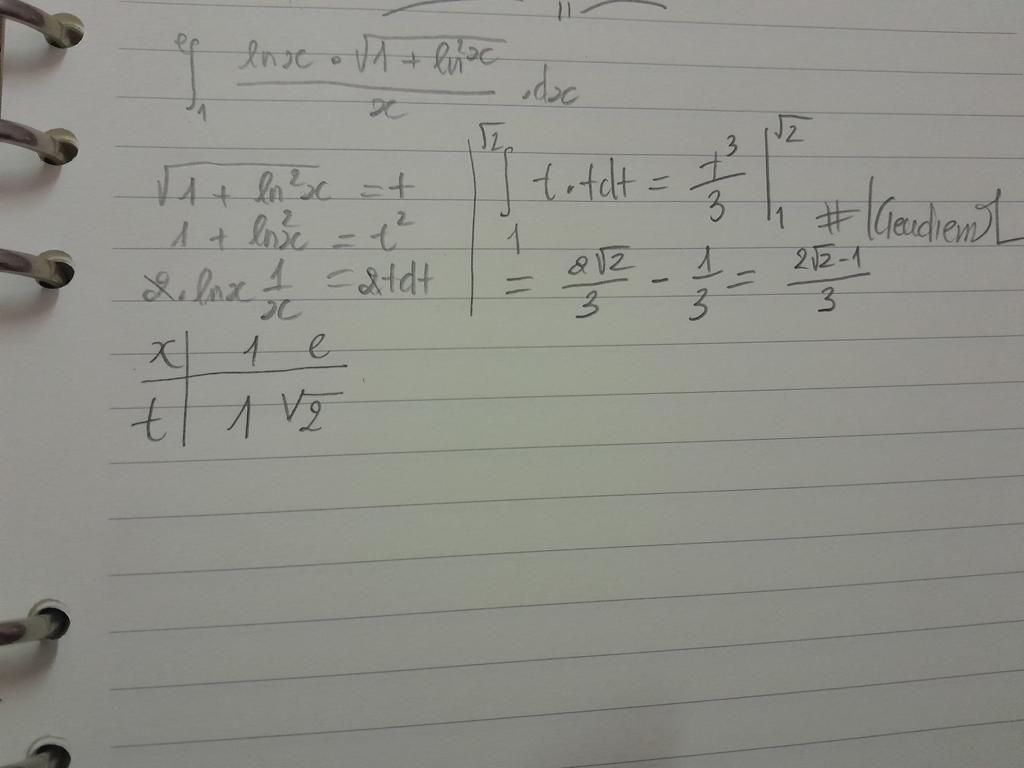 ∫₁ᵉ (lnx · √(1 + ln²x)) / x · dx
√(1 + ln²x) = t
1 + ln²x = t²
2 · lnx 1/x = 2tdt
x | 1 e
t | 1 √2
∫₁^√2 t · tdt = t³/3 |₁^√2
= 2√2/3 - 1/3 = (2√2-1)/3
#